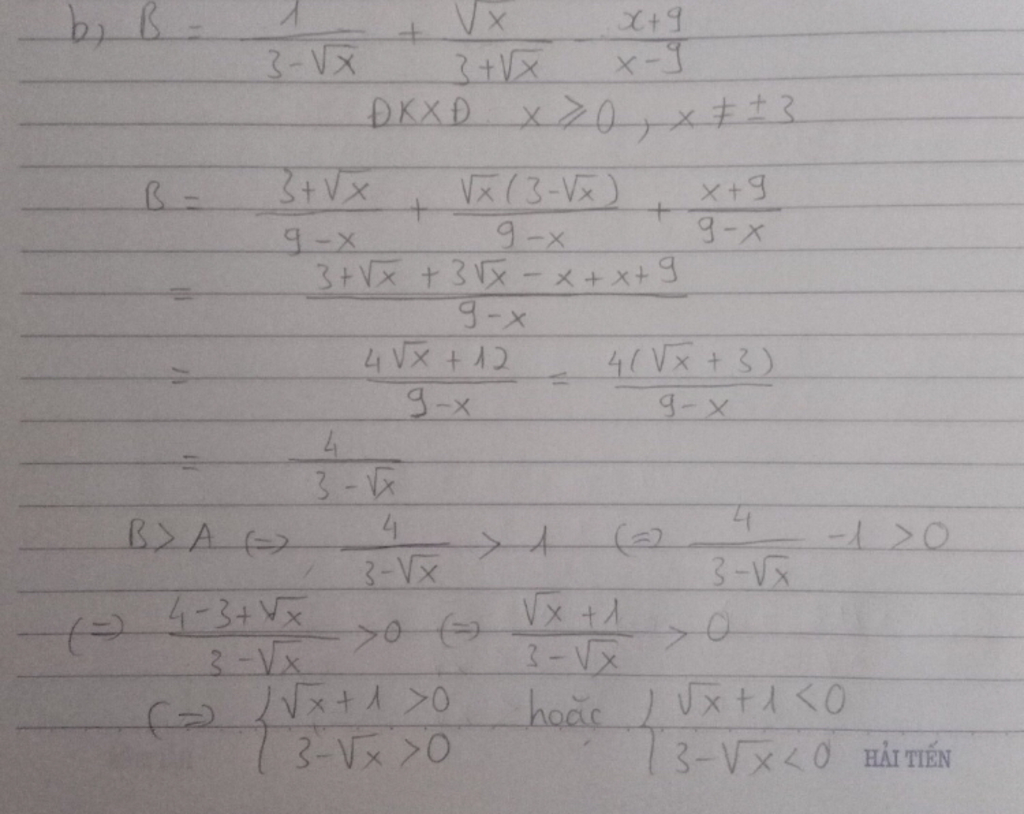 b, B = 1/(3-√x) + √x/(3+√x) - (x+9)/(x-9)
ĐKXĐ x ⩾ 0, x ≠ ± 3
B = (3+√x)/(9-x) + √x(3-√x)/(9-x) + (x+9)/(9-x)
= (3+√x + 3√x - x + x + 9)/(9-x)
= (4√x + 12)/(9-x) = 4(√x + 3)/(9-x)
= 4/(3-√x)
B > A (=) 4/(3-√x) > 1 (=) 4/(3-√x) - 1 > 0
(=) (4-3+√x)/(3-√x) > 0 (=) (√x + 1)/(3-√x) > 0
(=) { √x + 1 > 0 hoặc { √x + 1 < 0
3-√x > 0 3-√x < 0 HẢI TIẾN